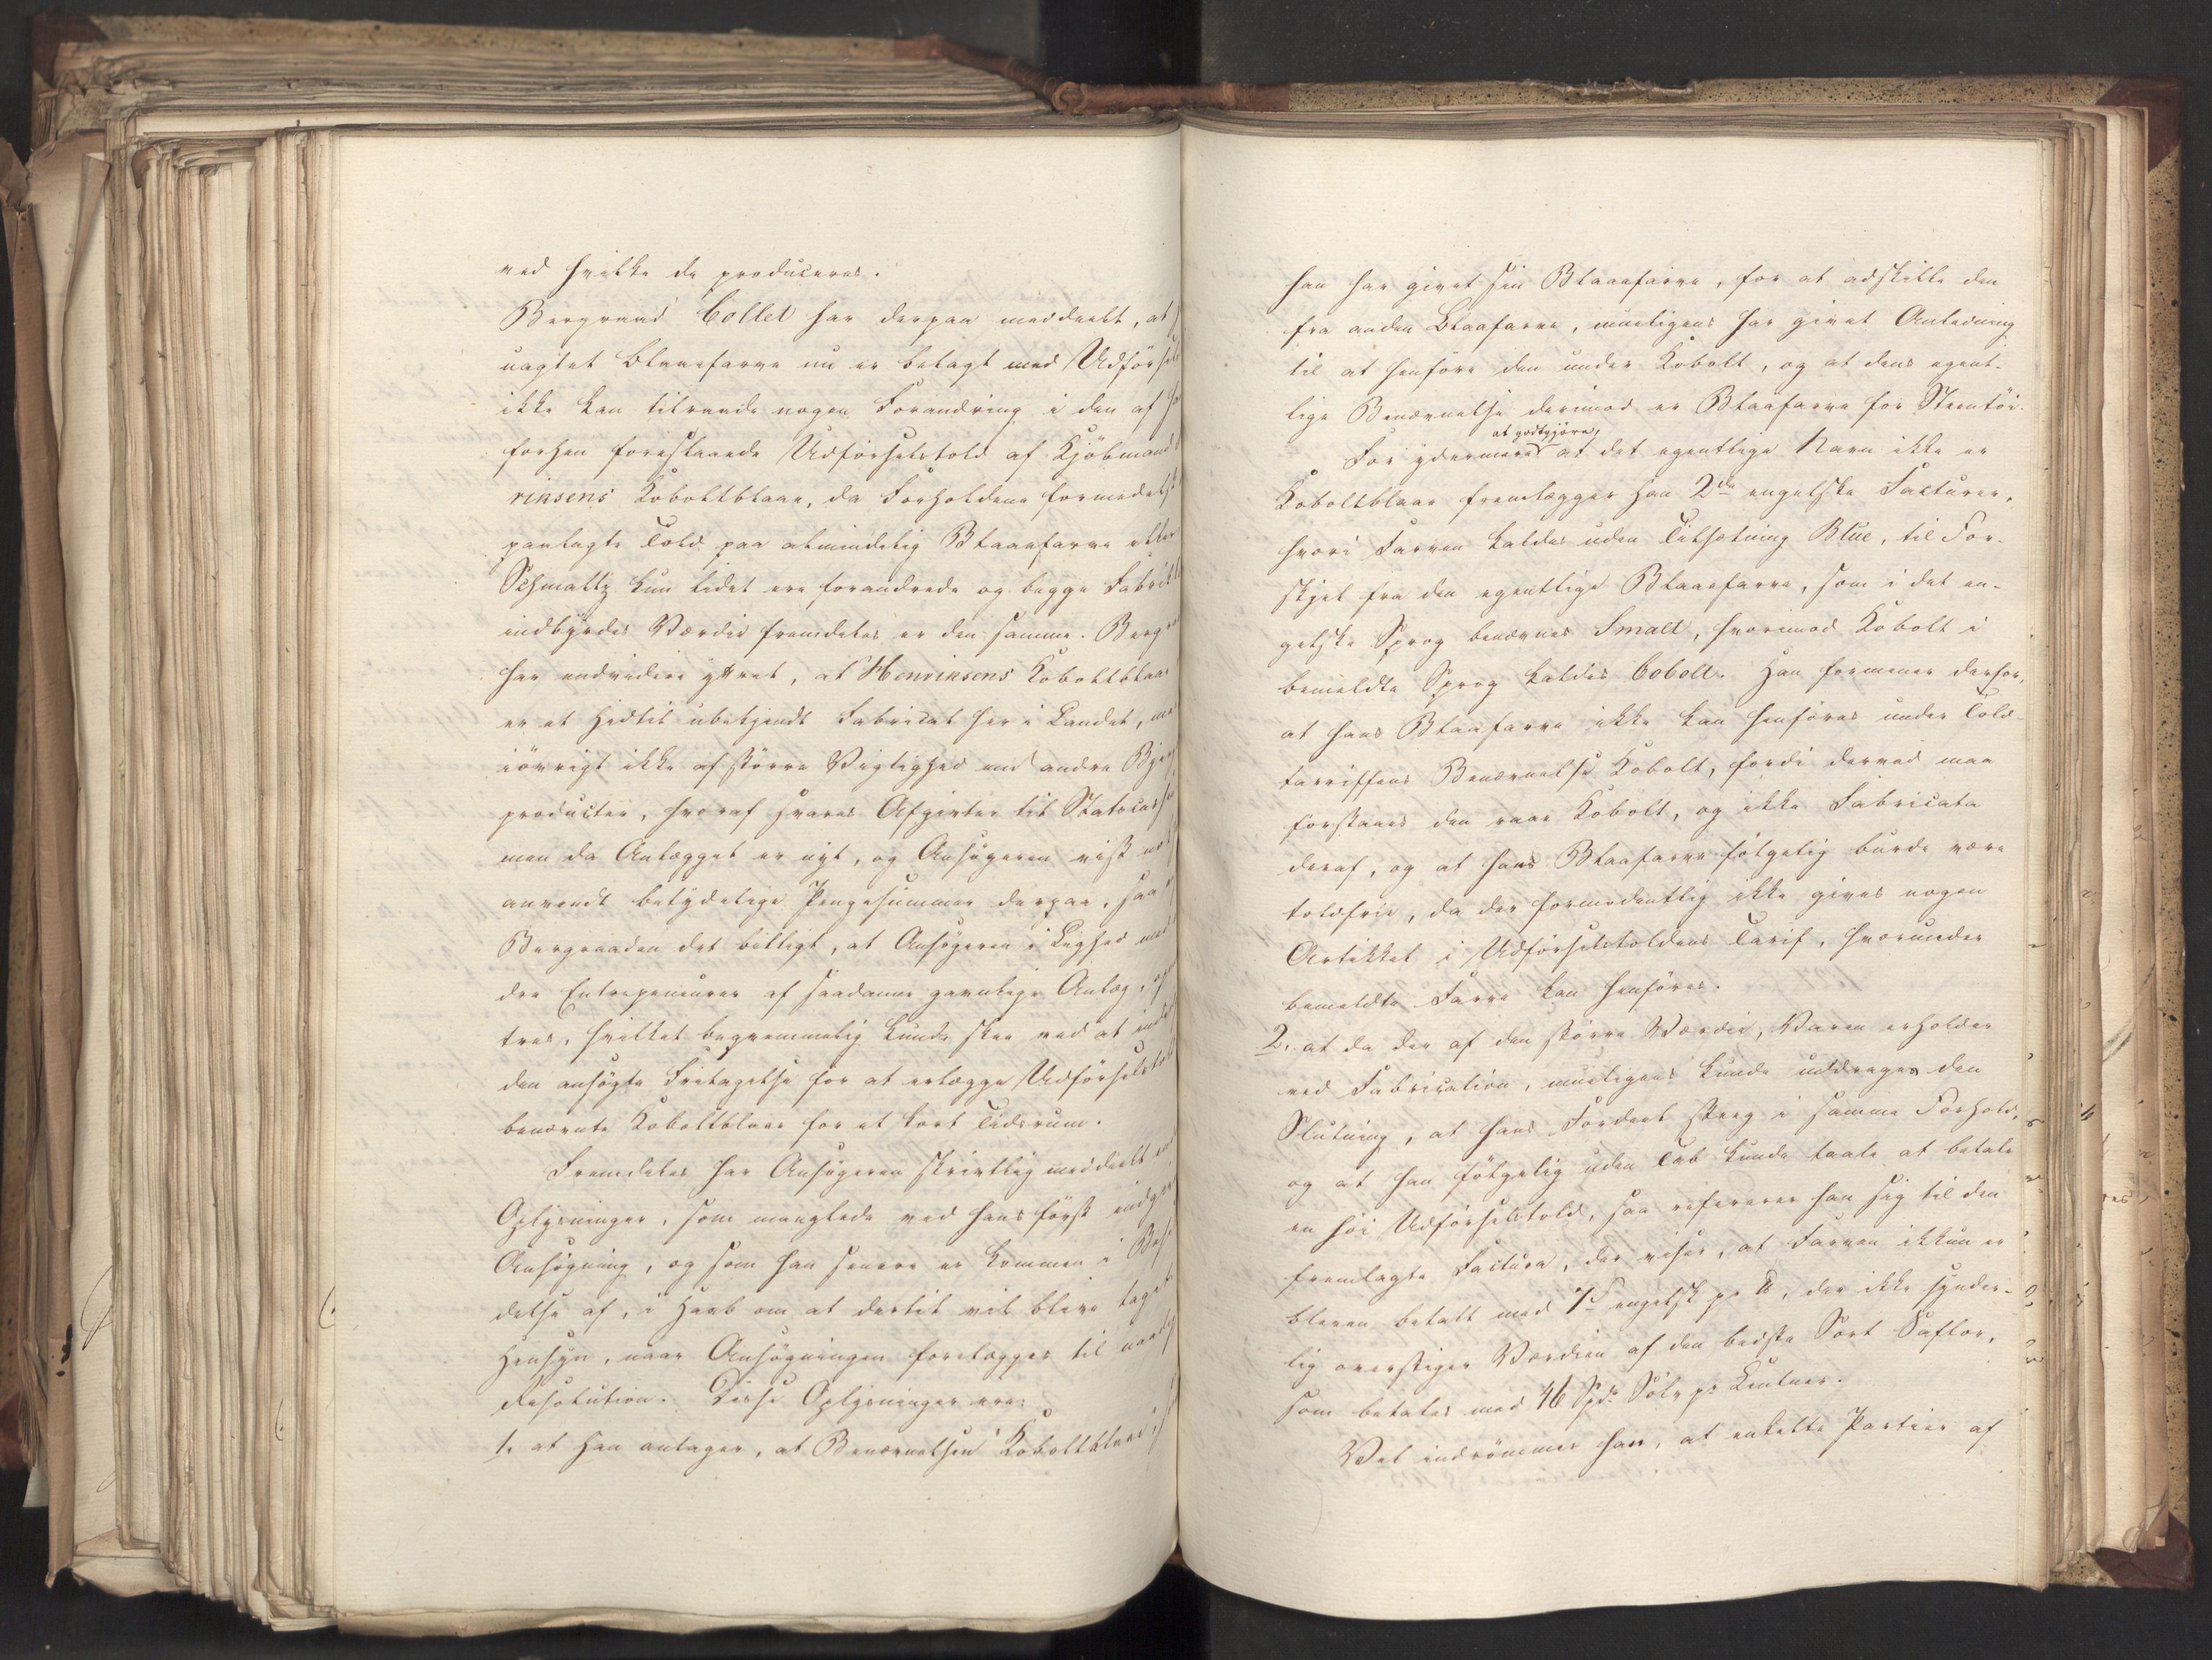 ved hvilke de produceres.
Bergraad Collet har derpaa meddeelt, at
uagtet Blaaefarve nu er belagt med Udførsels
ikke kan tilraade nogen Forandring i den af
forhen foreslaaede Udførselstold af Kjøbmand
rinsens Koboltblaae, da Forholdene formedelst
paalagte Told paa almindelig Blaaefarve eller
Schmaltz kun lidet ere forandrede og begge Fabrik
indbyrdes Værdie fremdeles er den samme. Berg
har endvidere yttret, at Henrinsens Koboltblaae
er et hidtil ubekjendt Fabricat her i Landet, men
iøvrigt ikke af større Vigtighed end andre Bjerg
producter, hvoraf svares Afgivter til Statscassen
men da Anlægget er nyt, og Ansøgeren vist nok
anvendt betydelige Pengesummer derpaa, saa
Bergraaden det billigt, at Ansøgeren i Lighed med
dre Entrepeneurer af saadanne gavnlige Anlæg, op
tres, hvilket beqvemmelig kunde skee ved at
den ansøgte Fritagelse for at erlægge Udførselstold
benævnte Koboltblaae for et kort Tidsrum.
Fremdeles har Ansøgeren skrivtlig meddeelt
Oplysninger, som manglede ved hans først indgivne
Ansøgning, og som han senere er kommen i Besid
delse af, i Haab om at dertil vil blive taget
Hensyn, naar Ansøgningen forelægges til naadigst
Resolution. Disse Oplysninger ere:
1. at han antager, at Benævnelsen Koboltblaae,
han har givet sin Blaaefarve, for at adskille den
fra anden Blaafarve, mueligens har givet Anledning
til at henføre den under Kobolt, og at dens egent-
lige Benævnelse derimod er Blaafarve for Steentøi.
at godtgjøre,
For ydermere at det egentlige Navn ikke er
Koboltblaae fremlægger han 2de engelske Facturer,
hvori Farven kaldes uden Tilsætning Blue, til For-
skjel fra den egentlige Blaaefarve, som i det en-
gelske Sprog benævnes Smalt, hvorimod Kobolt i
bemeldte Sprog kaldes Cobolt. Han formener derfor,
at hans Blaafarve ikke kan henføres under Told-
tariffens Benævnelse Kobolt, fordi derved maa
forstaaes den raae Kobolt, og ikke Fabricata
deraf, og at hans Blaafarve følgelig burde være
toldfrie, da der formodentlig ikke gives nogen
Artikkel i Udførselstoldens Tarif, hvorunder
bemeldte Farve kan henføres.
2. at da der af den større Værdie, Varen erholder
ved Fabrication, mueligens kunde uddrages den
Slutning, at hans Fordeel steeg i samme Forhold,
og at han følgelig uden Tab kunde taale at betale
en høi Udførselstold, saa refererer han sig til den
fremlagte Factura, der viser, at Farven ikkun er
bleven betalt med 7 engelsk pr ℔, der ikke synder-
lig overstiger Værdien af den bedste Sort Saflor,
som betales med 46 Spd. Sølv pr Centner.
Vel indrømmer han, at enkelte Partier af